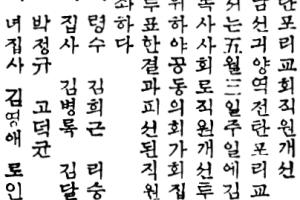 탄포리교회직원개선
남선긔양역전탄포리교
회는五월三일주일에김
목사사회로직원개선투
위하야공동의회가회집
투표한결과피선된직원
좌하다
령수 김희근 리승
집사 김병록 김달
박정규 고덕균
녀집사 김영애 로인